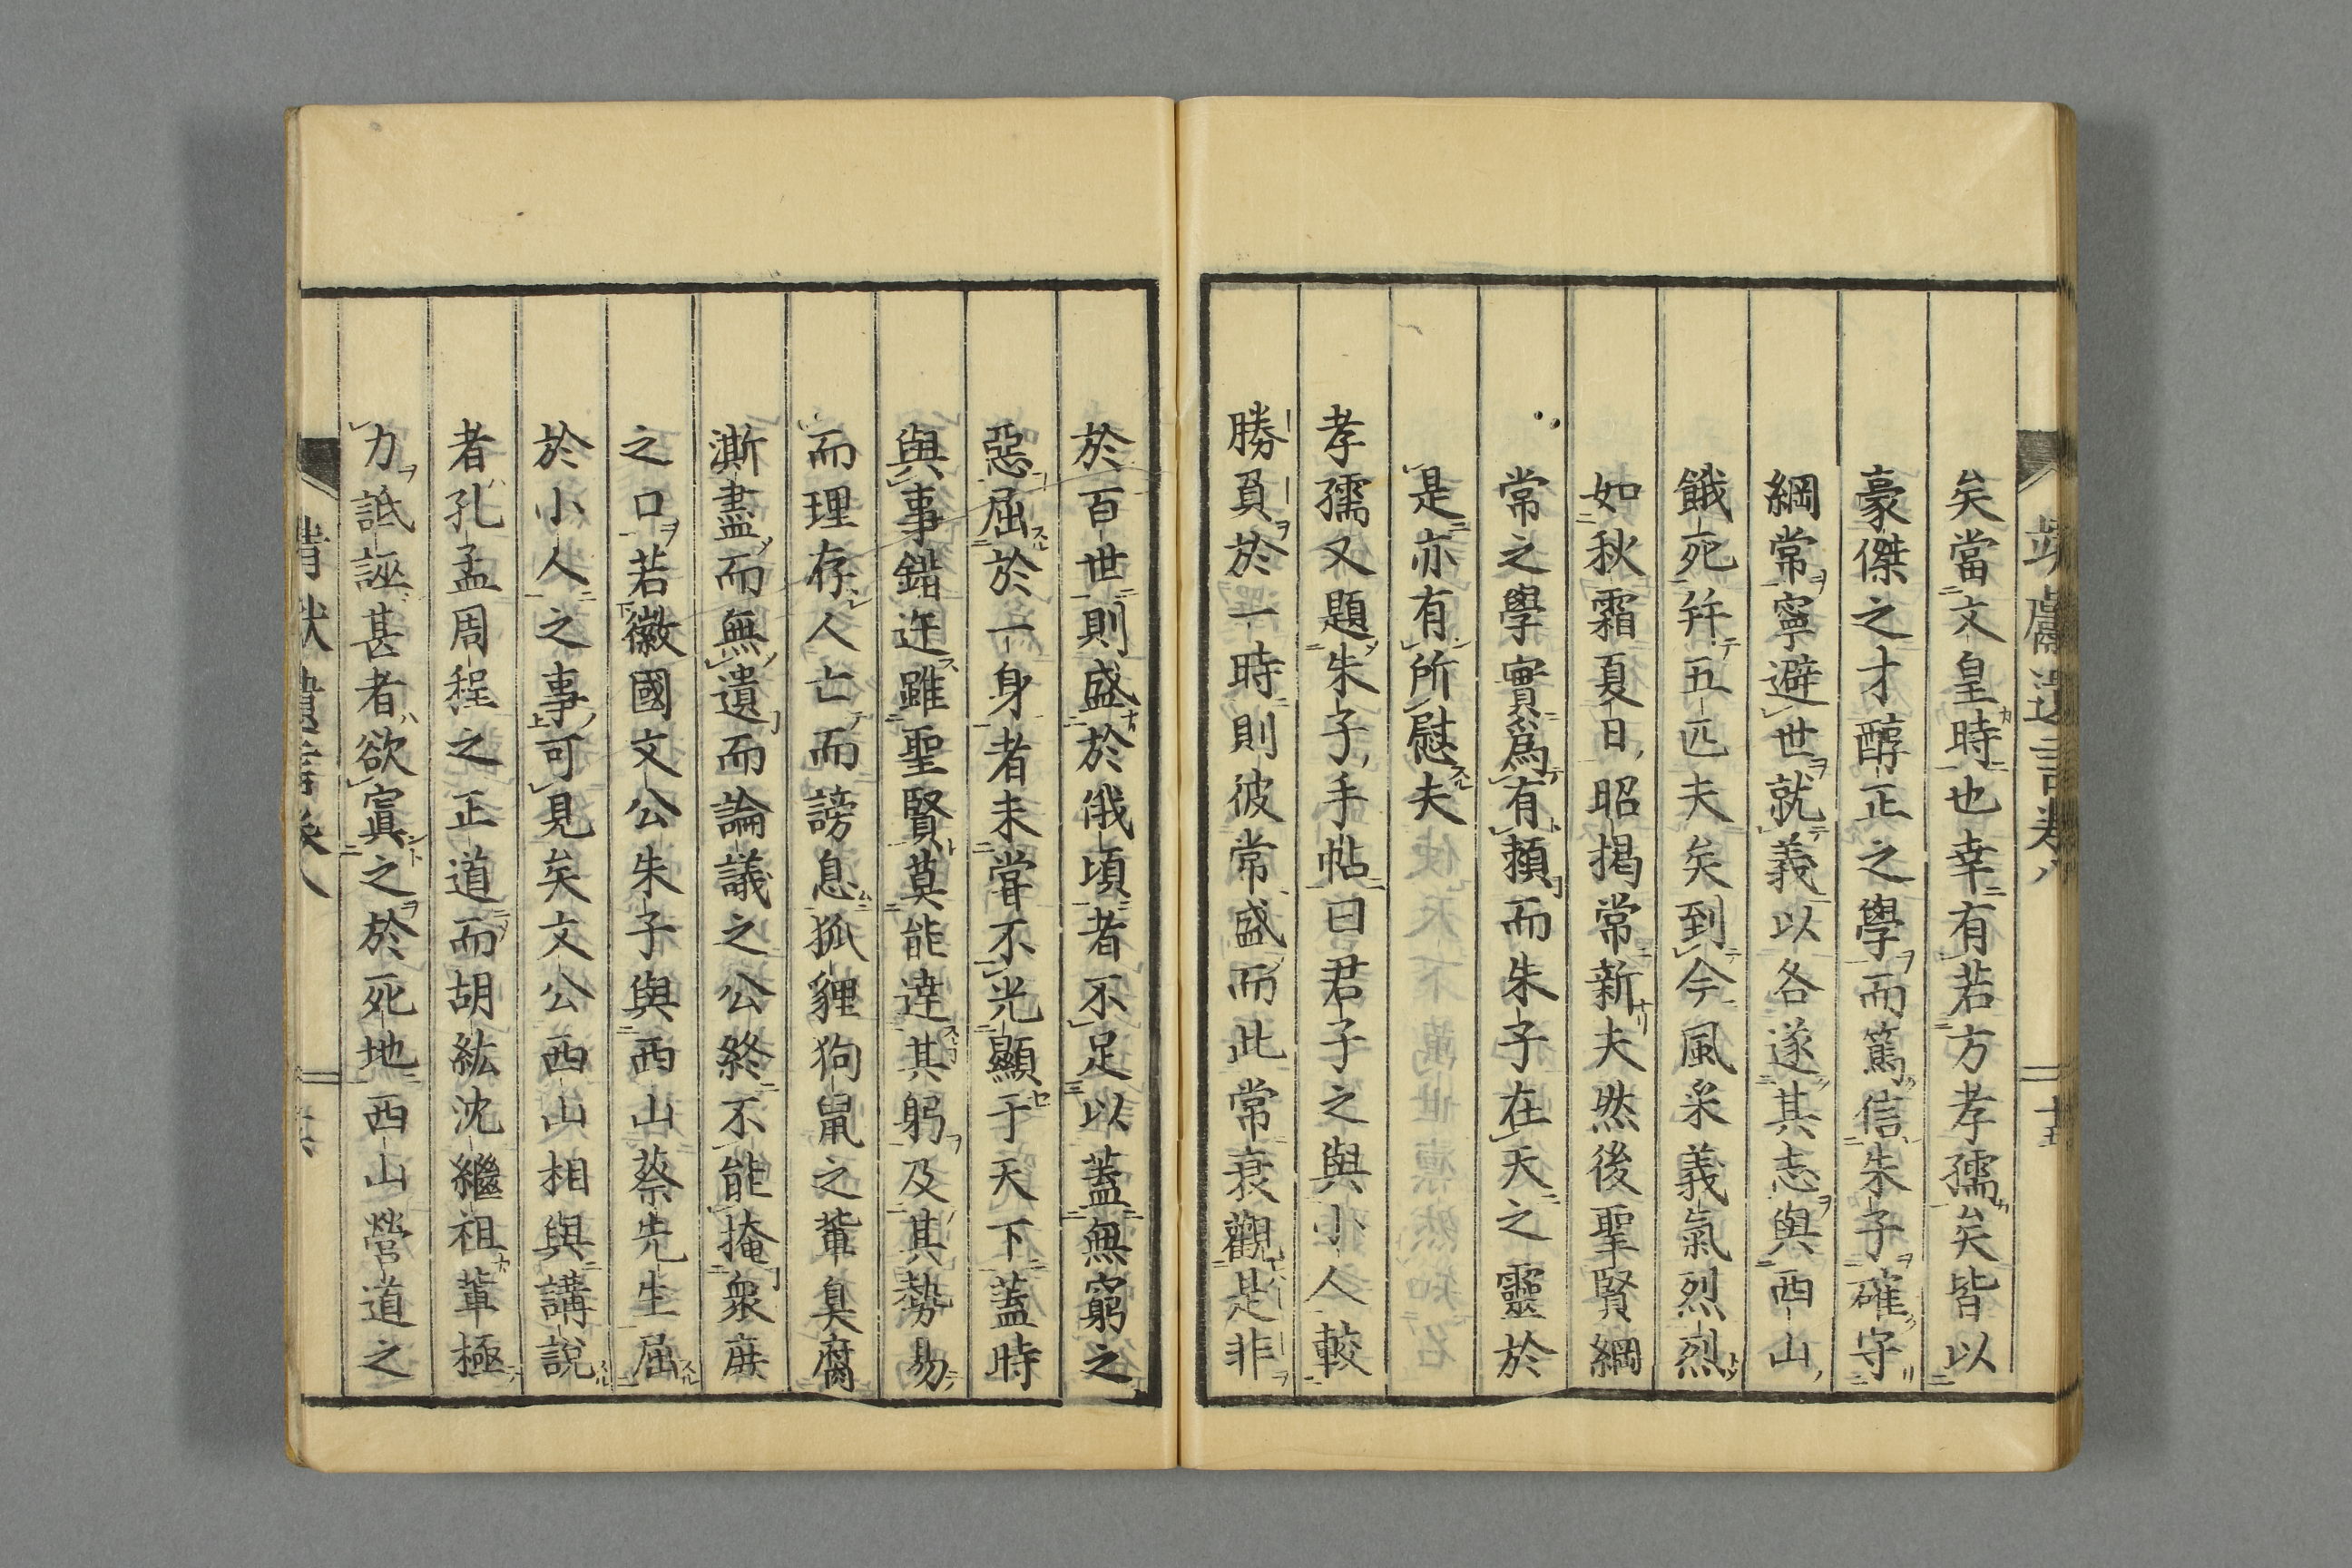 矣當文皇時也幸有若方孝孺矣皆以
豪傑之才醇正之學而篤信朱子確守
綱常寧避世就義以各遂其志與西山
餓死幷五匹夫矣到今風采義氣烈烈
如秋霜夏日昭揭常新夫然後聖賢綱
常之學實爲有賴而朱子在天之靈於
是亦有所慰夫
孝孺又題朱子手帖曰君子之與小人較
勝負於一時則彼常盛而此常衰觀是非
於百世則盛於俄頃者不足以蓋無窮之
惡屈於一身者未甞不光顯于天下蓋時
與事錯迕雖聖賢莫能達其躬及其勢易
而理存人亡而謗息狐貍狗鼠之輩臭腐
澌盡而無遺而論議之公終不能掩衆庶
之口若徽國文公朱子與西山蔡先生屈
於小人之事可見矣文公西山相與講說
者孔孟周程之正道而胡紘沈繼祖輩極
力詆誣甚者欲寘之於死地西山營道之